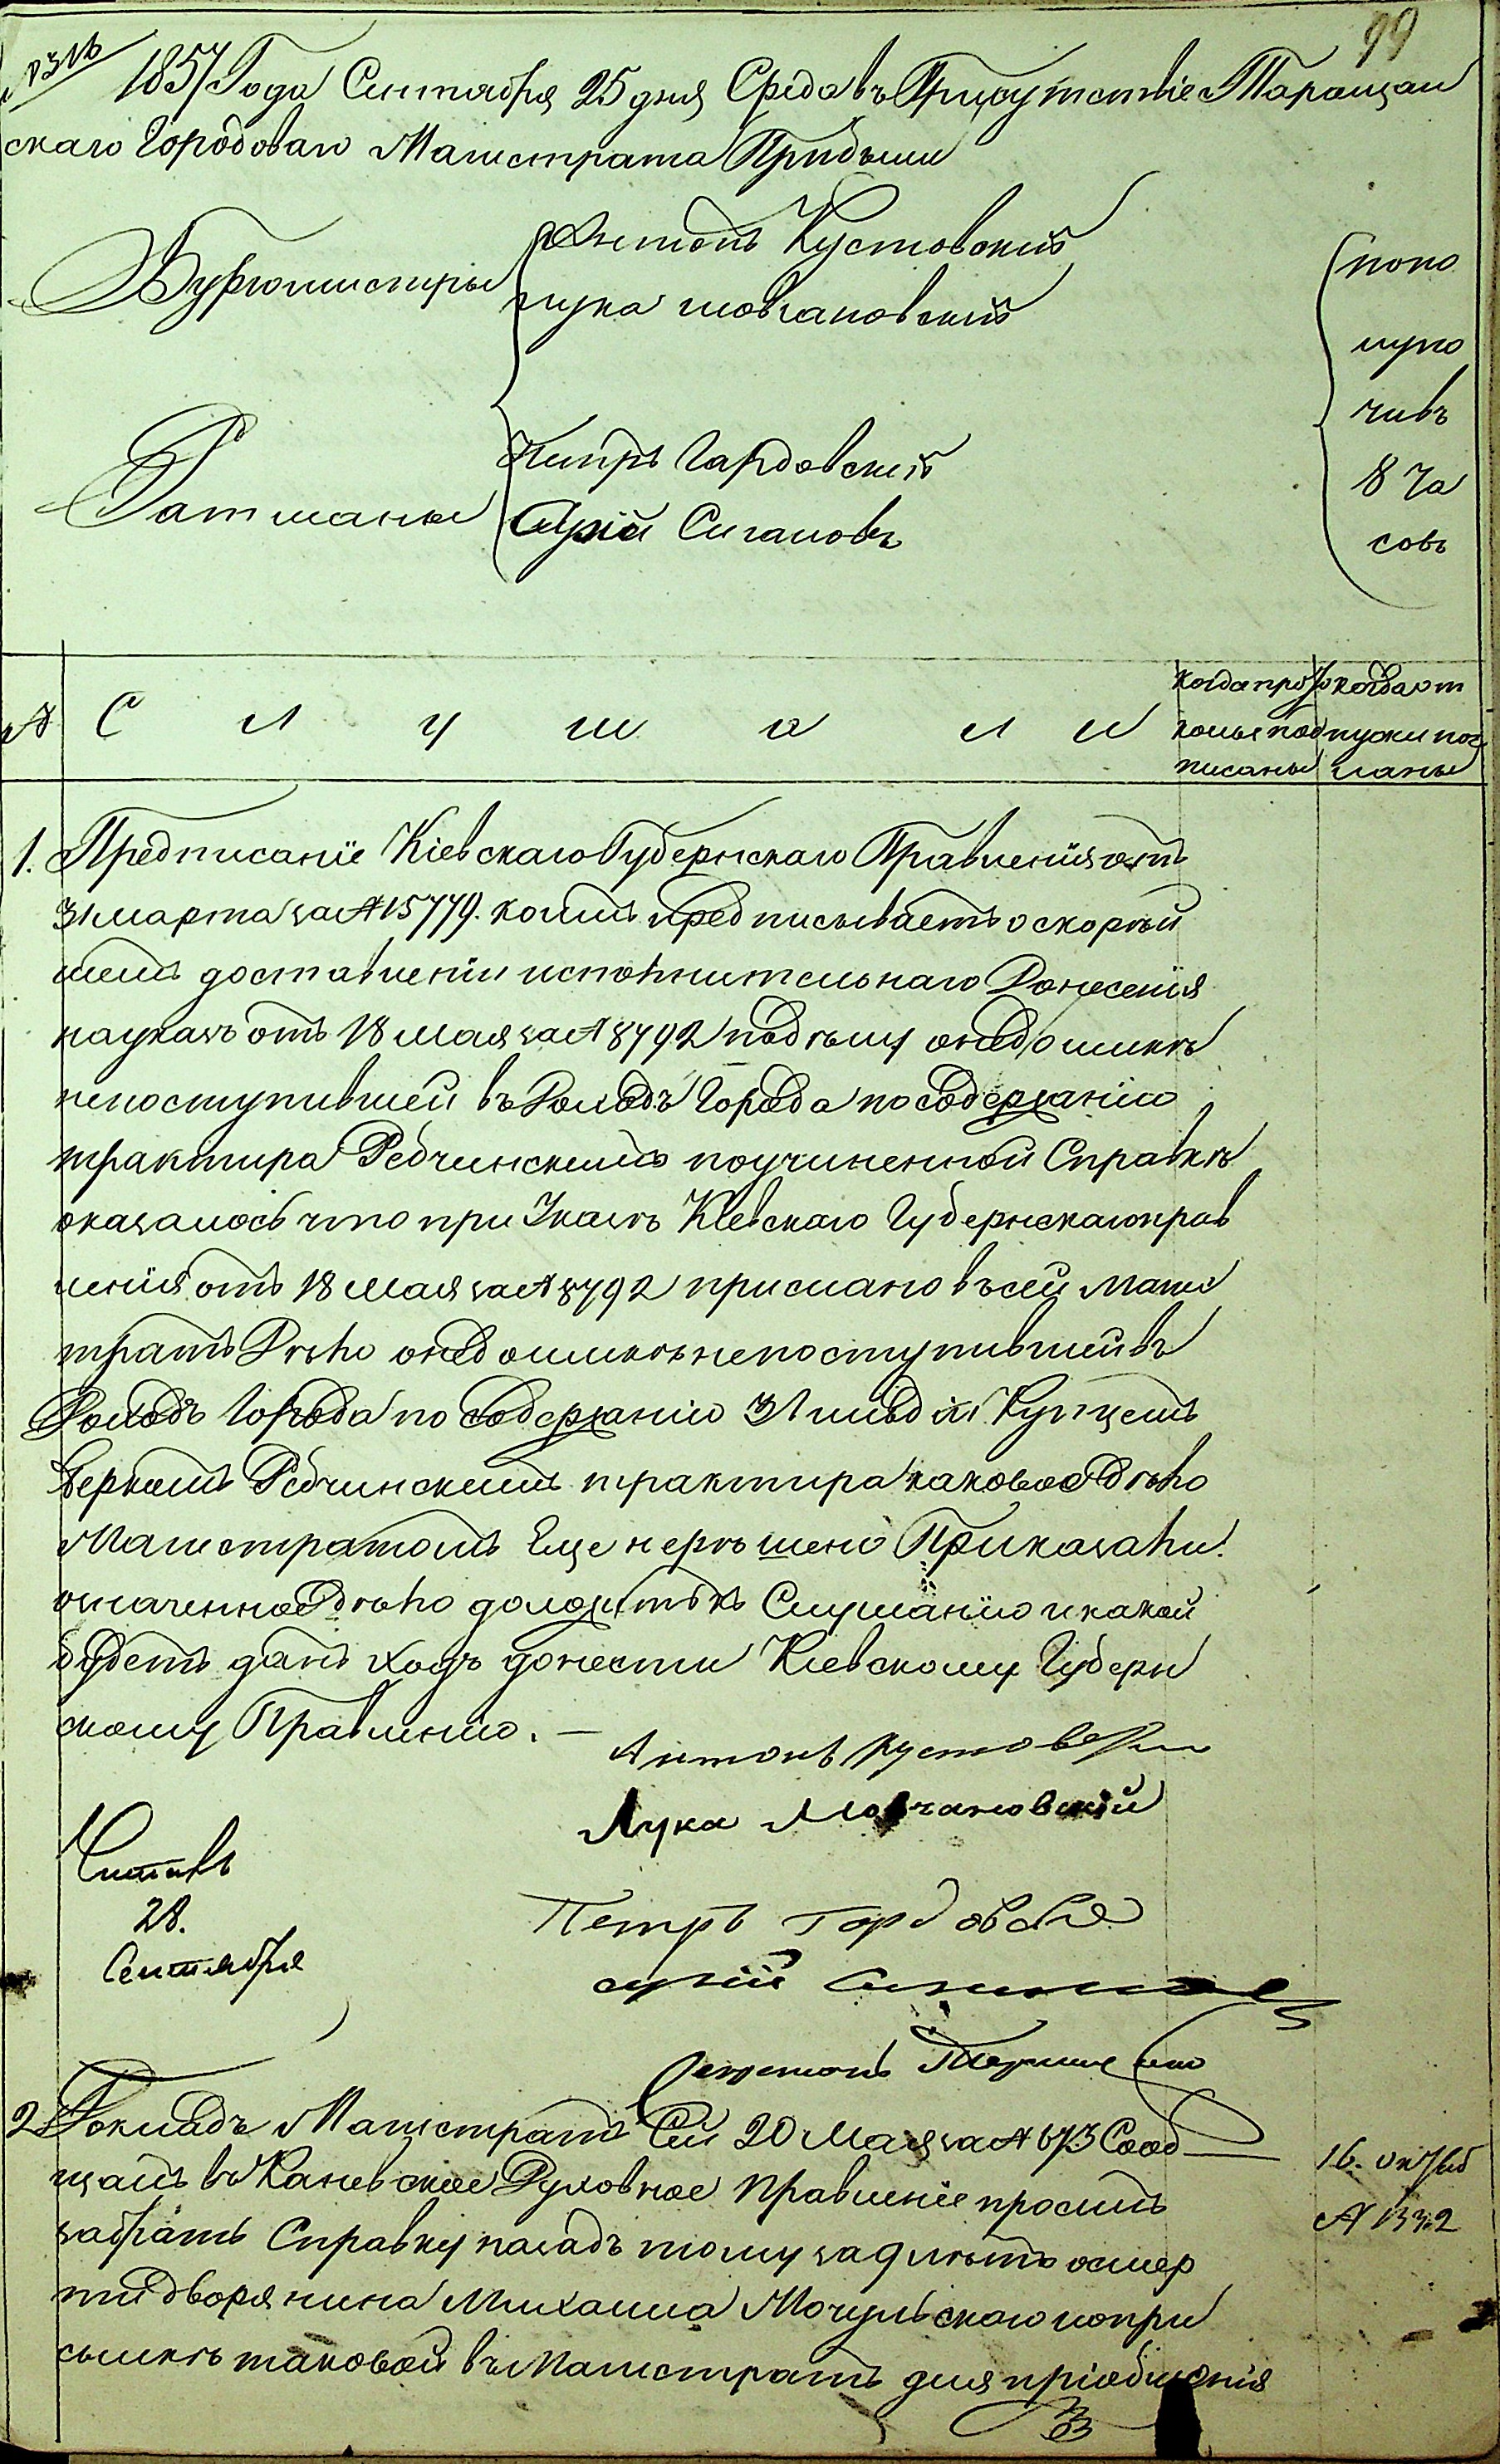 99
1857 Года Сентября 25 дня Среда въ Присутствіе Таращан
скаго Городоваго Магистрата Прибыли
Бургомистры
Антонъ Кустовскій
Лука Мовчановскій
Ратманы
Петръ Гардовскій
Сигаловъ
попо
лупо
чивъ
8 ча
совъ
№ С л у ш а л и
когда прото
колы под
писаны
когда от
пуски пос
ланы
1. Предписаніе Кіевскаго Губернскаго Правленія отъ
31 марта за № 15779. коимъ предписываетъ о скорѣй
шемъ доставленіи исполнительнаго Донесенія
на указъ отъ 18 Мая за № 8792 по дѣлу о недоимкѣ
непоступившей въ Доходъ Города по содержанію
трактира Редчинскимъ по учиненной Справкѣ
оказалось что при Указѣ Кіевскаго Губернскаго прав
ленія отъ 18 Мая за № 8792 прислано въ сей Магис
тратъ Дѣло о недоимкѣ непоступившей въ
Доходъ Города по содержанію 3 гильдіи Купцемъ
Беркомъ Редчинскимъ трактира каковое Дѣло
Магистратомъ Еще нерѣшено Приказали.
означенное Дѣло доложить къ Слушанію и какой
будетъ данъ ходъ донести Кіевскому Губерн
скому Правленію. —
Антонъ Кустовскій
Лука Мовчановскій
Читалъ
28.
Сентября
Петръ Гордовскій
2. Докладъ Магистратъ Сей 20 Мая за № 673 Сооб
щалъ въ Каневское Духовное Правленіе просилъ
забрать Справку назадъ тому за 9 лѣтъ о смер
ти дворянина Михаила Мочульскаго и о при
сылкѣ таковой въ Магистратъ для пріобщенія
16. октяб
№ 1332